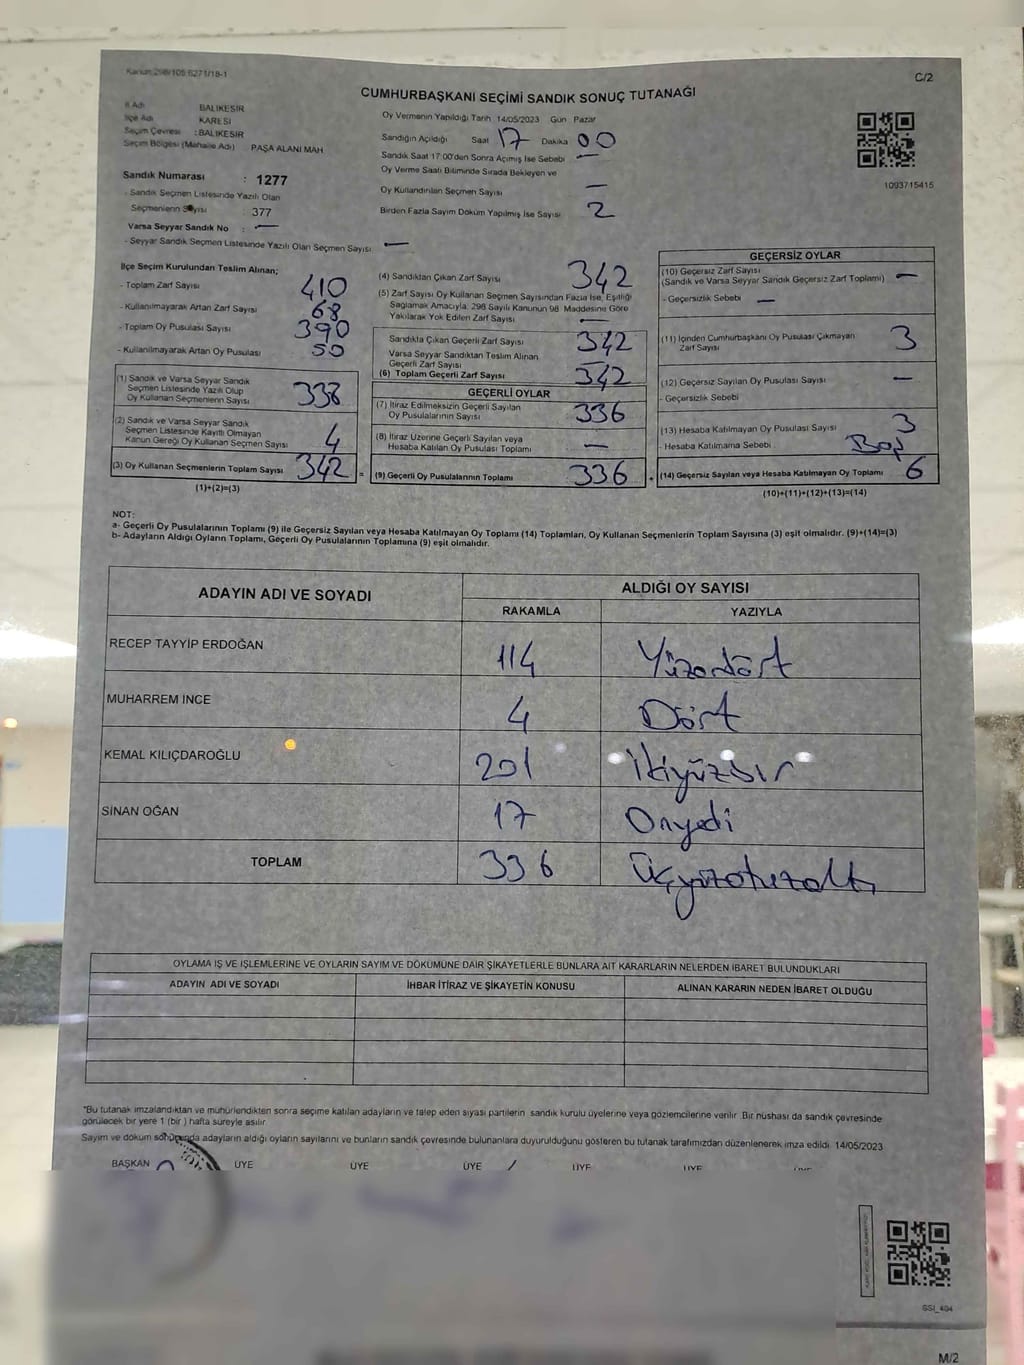 Kanun:298/105.6271/18-1
C/2
CUMHURBAŞKANI SEÇİMİ SANDIK SONUÇ TUTANAĞI
İl Adı BALIKESİR
İlçe Adı KARESİ
Seçim Çevresi : BALIKESİR
Seçim Bölgesi (Mahalle Adı) PAŞA ALANI MAH
Sandık Numarası : 1277
- Sandık Seçmen Listesinde Yazılı Olan
Seçmenlerin Sayısı : 377
Varsa Seyyar Sandık No : —
- Seyyar Sandık Seçmen Listesinde Yazılı Olan Seçmen Sayısı —
Oy Vermenin Yapıldığı Tarih 14/05/2023 Gün Pazar
Sandığın Açıldığı Saat 17 Dakika 00
Sandık Saat 17:00'den Sonra Açımış İse Sebebi —
Oy Verme Saati Bitiminde Sırada Bekleyen ve
Oy Kullandırılan Seçmen Sayısı —
Birden Fazla Sayım Döküm Yapılmış İse Sayısı 2
1093715415
İlçe Seçim Kurulundan Teslim Alınan;
- Toplam Zarf Sayısı 410
- Kullanılmayarak Artan Zarf Sayısı 68
- Toplam Oy Pusulası Sayısı 390
- Kullanılmayarak Artan Oy Pusulası 50
(1) Sandık ve Varsa Seyyar Sandık
Seçmen Listesinde Yazılı Olup
Oy Kullanan Seçmenlerin Sayısı 338
(2) Sandık ve Varsa Seyyar Sandık
Seçmen Listesinde Kayıtlı Olmayan
Kanun Gereği Oy Kullanan Seçmen Sayısı 4
(3) Oy Kullanan Seçmenlerin Toplam Sayısı 342 =
(1)+(2)=(3)
(4) Sandıktan Çıkan Zarf Sayısı 342
(5) Zarf Sayısı Oy Kullanan Seçmen Sayısından Fazla İse, Eşitliği
Sağlamak Amacıyla, 298 Sayılı Kanunun 98. Maddesine Göre
Yakılarak Yok Edilen Zarf Sayısı —
Sandıkta Çıkan Geçerli Zarf Sayısı 342
Varsa Seyyar Sandıktan Teslim Alınan
Geçerli Zarf Sayısı
(6) Toplam Geçerli Zarf Sayısı 342
GEÇERLİ OYLAR
(7) İtiraz Edilmeksizin Geçerli Sayılan
Oy Pusulalarının Sayısı 336
(8) İtiraz Üzerine Geçerli Sayılan veya
Hesaba Katılan Oy Pusulası Toplamı —
(9) Geçerli Oy Pusulalarının Toplamı 336 +
GEÇERSİZ OYLAR
(10) Geçersiz Zarf Sayısı
(Sandık ve Varsa Seyyar Sandık Geçersiz Zarf Toplamı) —
- Geçersizlik Sebebi —
(11) İçinden Cumhurbaşkanı Oy Pusulası Çıkmayan
Zarf Sayısı 3
(12) Geçersiz Sayılan Oy Pusulası Sayısı —
- Geçersizlik Sebebi
(13) Hesaba Katılmayan Oy Pusulası Sayısı 3
- Hesaba Katılmama Sebebi Boş
(14) Geçersiz Sayılan veya Hesaba Katılmayan Oy Toplamı 6
(10)+(11)+(12)+(13)=(14)
NOT:
a- Geçerli Oy Pusulalarının Toplamı (9) ile Geçersiz Sayılan veya Hesaba Katılmayan Oy Toplamı (14) Toplamları, Oy Kullanan Seçmenlerin Toplam Sayısına (3) eşit olmalıdır. (9)+(14)=(3)
b- Adayların Aldığı Oyların Toplamı, Geçerli Oy Pusulalarının Toplamına (9) eşit olmalıdır.
ADAYIN ADI VE SOYADI ALDIĞI OY SAYISI
RAKAMLA YAZIYLA
RECEP TAYYİP ERDOĞAN 114 Yüzondört
MUHARREM İNCE 4 Dört
KEMAL KILIÇDAROĞLU 201 İkiyüzbir
SİNAN OĞAN 17 Onyedi
TOPLAM 336 Üçyüzotuzaltı
OYLAMA İŞ VE İŞLEMLERİNE VE OYLARIN SAYIM VE DÖKÜMÜNE DAİR ŞİKAYETLERLE BUNLARA AİT KARARLARIN NELERDEN İBARET BULUNDUKLARI
ADAYIN ADI VE SOYADI İHBAR İTİRAZ VE ŞİKAYETİN KONUSU ALINAN KARARIN NEDEN İBARET OLDUĞU
"Bu tutanak imzalandıktan ve mühürlendikten sonra seçime katılan adayların ve talep eden siyasi partilerin sandık kurulu üyelerine veya gözlemcilerine verilir. Bir nüshası da sandık çevresinde
görülecek bir yere 1 (bir) hafta süreyle asılır.
Sayım ve döküm sonucunda adayların aldığı oyların sayılarını ve bunların sandık çevresinde bulunanlara duyurulduğunu gösteren bu tutanak tarafımızdan düzenlenerek imza edildi. 14/05/2023
BAŞKAN ÜYE ÜYE ÜYE ÜYE ÜYE ÜYE
SSİ_404
M/2